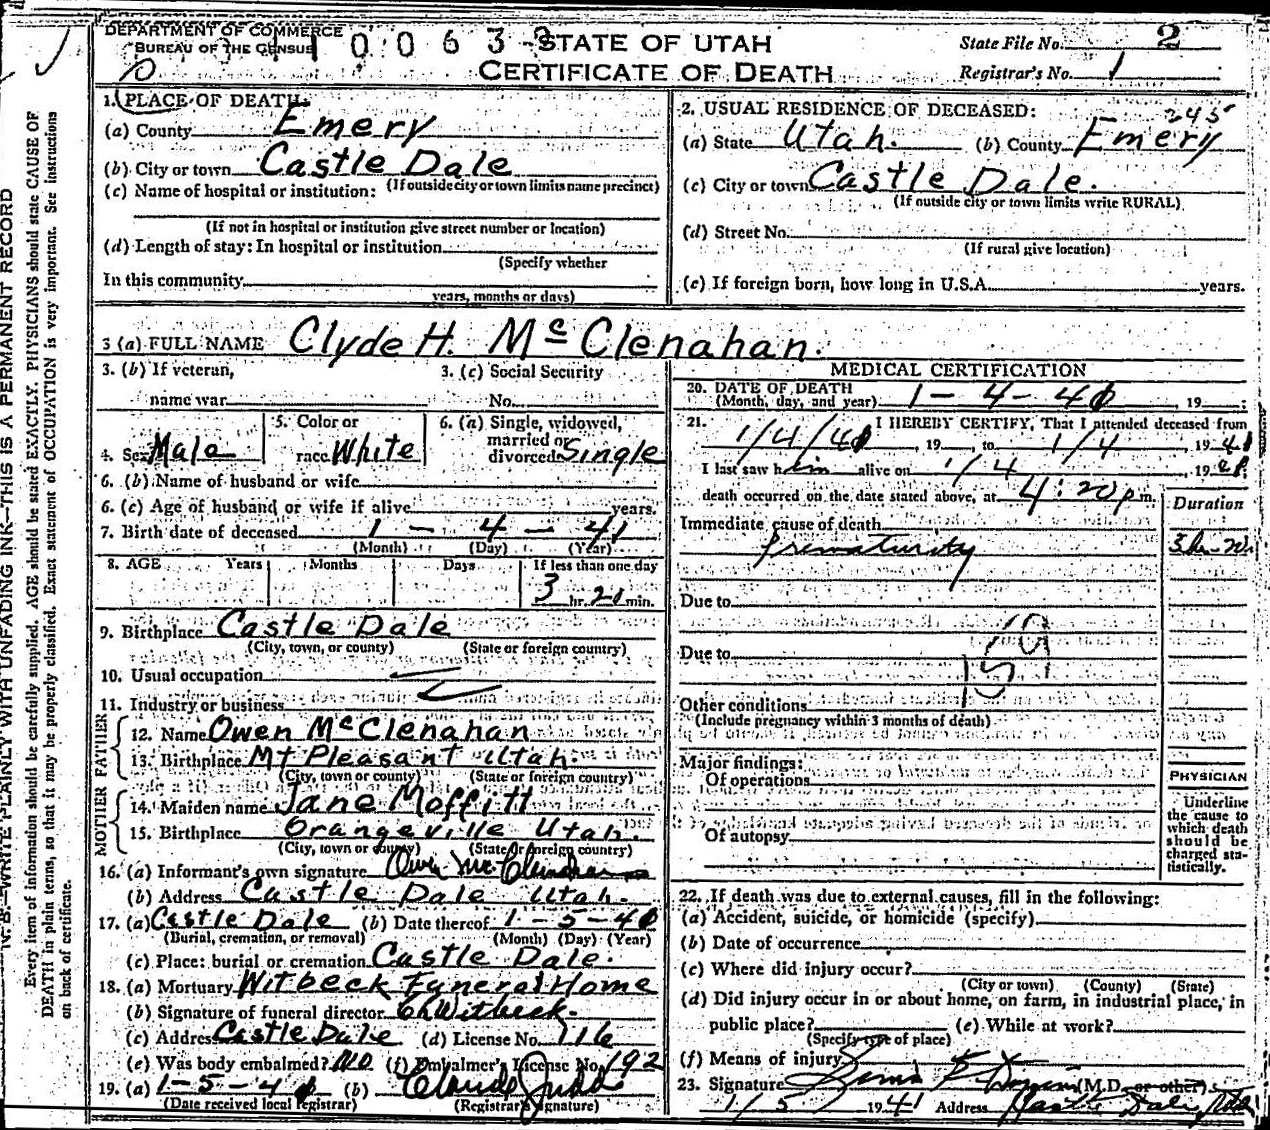 DEPARTMENT OF COMMERCE
BUREAU OF THE CENSUS
1 0 0 6 3
STATE OF UTAH
CERTIFICATE OF DEATH
State File No. 2
Registrar's No. 1
N. B.—WRITE PLAINLY WITH UNFADING INK—THIS IS A PERMANENT RECORD
Every item of information should be carefully supplied. AGE should be stated EXACTLY. PHYSICIANS should state CAUSE OF
DEATH in plain terms, so that it may be properly classified. Exact statement of OCCUPATION is very important. See instructions
on back of certificate.
1. PLACE OF DEATH:
(a) County Emery
(b) City or town Castle Dale
(If outside city or town limits name precinct)
(c) Name of hospital or institution:
(If not in hospital or institution give street number or location)
(d) Length of stay: In hospital or institution
(Specify whether
In this community
years, months or days)
2. USUAL RESIDENCE OF DECEASED:
245
(a) State Utah. (b) County Emery
(c) City or town Castle Dale.
(If outside city or town limits write RURAL)
(d) Street No.
(If rural give location)
(e) If foreign born, how long in U.S.A. years.
3 (a) FULL NAME Clyde H. McClenahan.
3. (b) If veteran, name war
3. (c) Social Security No.
4. Sex Male
5. Color or race White
6. (a) Single, widowed, married or divorced Single
6. (b) Name of husband or wife
6. (c) Age of husband or wife if alive years.
7. Birth date of deceased 1 - 4 - 41
(Month) (Day) (Year)
8. AGE Years Months Days If less than one day
3 hr. 20 min.
9. Birthplace Castle Dale
(City, town, or county) (State or foreign country)
10. Usual occupation
11. Industry or business
FATHER
12. Name Owen McClenahan
13. Birthplace Mt Pleasant Utah.
(City, town or county) (State or foreign country)
MOTHER
14. Maiden name Jane Moffitt
15. Birthplace Orangeville Utah.
(City, town or county) (State or foreign country)
16. (a) Informant's own signature Owen McClenahan
(b) Address Castle Dale Utah.
17. (a) Castle Dale (b) Date thereof 1 - 5 - 41
(Burial, cremation, or removal) (Month) (Day) (Year)
(c) Place: burial or cremation Castle Dale.
18. (a) Mortuary Witbeck Funeral Home
(b) Signature of funeral director C Witbeck.
(c) Address Castle Dale (d) License No. 716
(e) Was body embalmed? No (f) Embalmer's License No. 192
19. (a) 1 - 5 - 41 (b) Claude Judd
(Date received local registrar) (Registrar's signature)
MEDICAL CERTIFICATION
20. DATE OF DEATH
(Month, day, and year) 1 - 4 - 41, 19
21. I HEREBY CERTIFY, That I attended deceased from
1/4/41, 19 to 1/4, 1941
I last saw him alive on 1/4, 1941
death occurred on the date stated above, at 4:20 p m.
Duration
Immediate cause of death
Prematurity 3 hr - 20
Due to
Due to
159
Other conditions
(Include pregnancy within 3 months of death)
Major findings:
Of operations
Of autopsy
PHYSICIAN
Underline
the cause to
which death
should be
charged sta-
tistically.
22. If death was due to external causes, fill in the following:
(a) Accident, suicide, or homicide (specify)
(b) Date of occurrence
(c) Where did injury occur?
(City or town) (County) (State)
(d) Did injury occur in or about home, on farm, in industrial place, in
public place? (e) While at work?
(Specify type of place)
(f) Means of injury
23. Signature (M.D. or other)
1/5/ 1941 Address Castle Dale, Utah